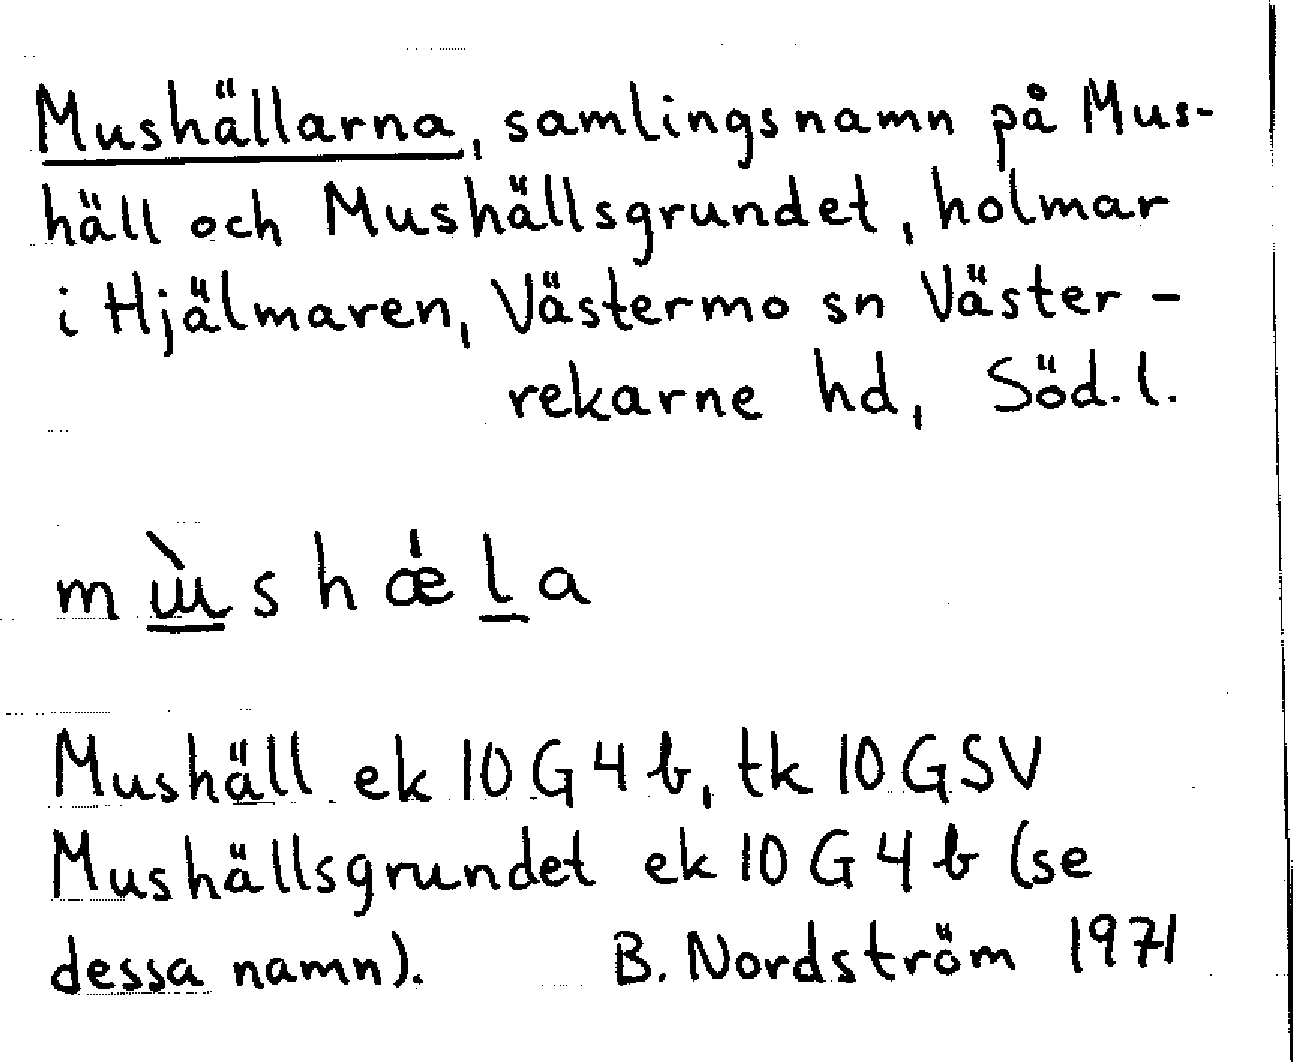 Mushällarna, samlingsnamn på Mus-
häll och Mushällsgrundet, holmar
i Hjälmaren, Västermo sn Väster-
rekarne hd, Söd.l.
Mushäll ek 10G4b, tk 10GSV
Mushällsgrundet ek 10G4b (se
dessa namn). B. Nordström 1971